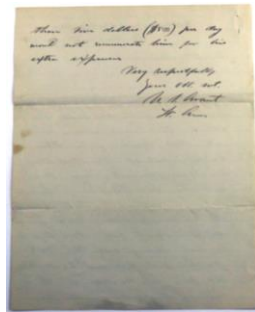 than five dollars ($5.00) per day
would not remunerate him for his
extra expenses
Very respectfully
Your obt. svt.
U. S. Grant